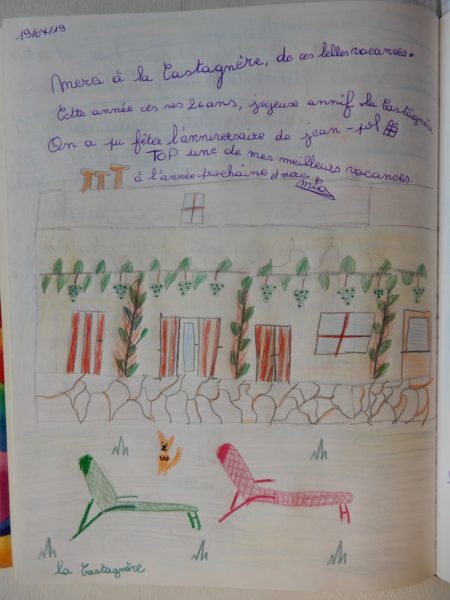 19/04/19
Merci à la Castagnère, de ces belles vacances.
Cette année ces ses 26 ans, joyeux annif la Castagnère
On a pu fêter l'anniversaire de jean-pol
TOP une de mes meilleurs vacances.
à l'année prochaine et merci
Mia
la Castagnère